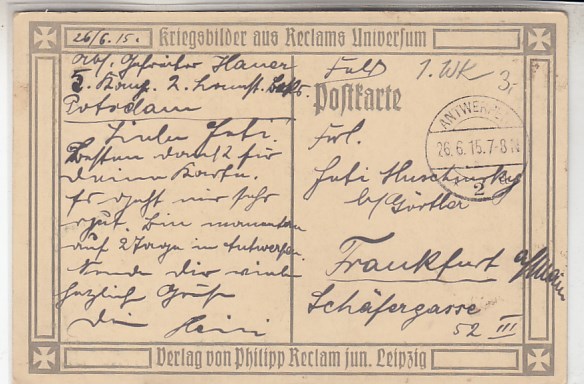 26/6.15.
Kriegsbilder aus Reclams Universum
Abs. Gefreiter Hauer
5. Komp. 2. Landst. Batl.
Potsdam
Feld
1. WK
Postkarte
ANTWERPEN
26.6.15.7-8N
2
Liebe Jeti!
Besten Dank für
Deine Karte.
Es geht mir sehr
gut. Bin momentan
auf 2 Tage in Antwerpen
Sende Dir viele
herzliche Grüße
Dein Heini
Frl.
Jeti
b/Görtler
Frankfurt a/Main
Schäfergasse
52 III
Verlag von Philipp Reclam jun. Leipzig